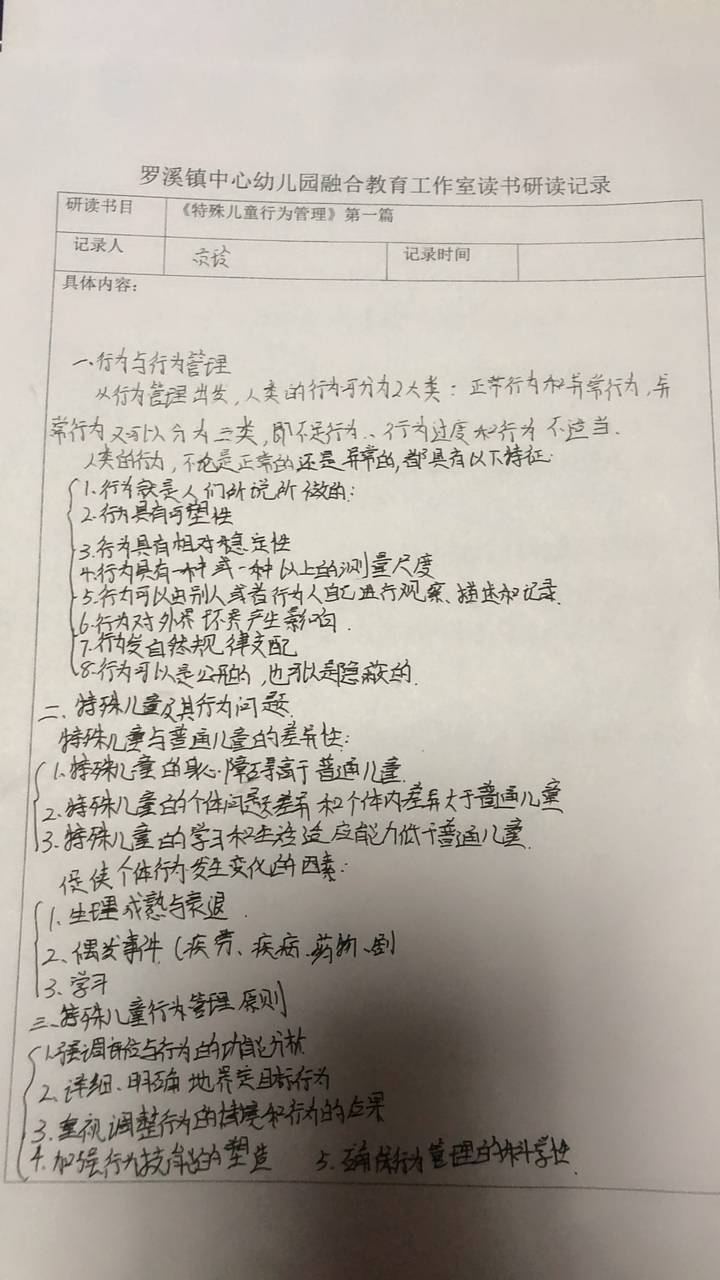 罗溪镇中心幼儿园融合教育工作室读书研读记录
研读书目 《特殊儿童行为管理》第一篇
记录人 记录时间
具体内容：
一、行为与行为管理
从行为管理出发，人类的行为可分为2大类：正常行为和异常行为，异
常行为又可以分为三类，即不足行为、行为过度和行为不适当．
人类的行为，不论是正常的还是异常的，都具有以下特征：
1．行为就是人们所说所做的；
2．行为具有可塑性
3．行为具有相对稳定性
4．行为具有一种或一种以上的测量尺度
5．行为可以由别人或者行为人自己进行观察、描述和记录．
6．行为对外界环界产生影响．
7．行为受自然规律支配
8．行为可以是公开的，也可以是隐蔽的．
二、特殊儿童及其行为问题
特殊儿童与普通儿童的差异性：
1．特殊儿童的身心障碍高于普通儿童．
2．特殊儿童的个体间差异和个体内差异大于普通儿童
3．特殊儿童的学习和生活适应能力低于普通儿童．
促使个体行为发生变化的因素：
1．生理成熟与衰退．
2、偶发事件（疲劳、疾病、药物、
3．学习
三、特殊儿童行为管理原则
1．强调 与行为的功能分析
2、详细、明确地界定目标行为
3．重视调整行为的情境和行为的后果
4．加强行为技能的塑造 5．确保行为管理的科学性．